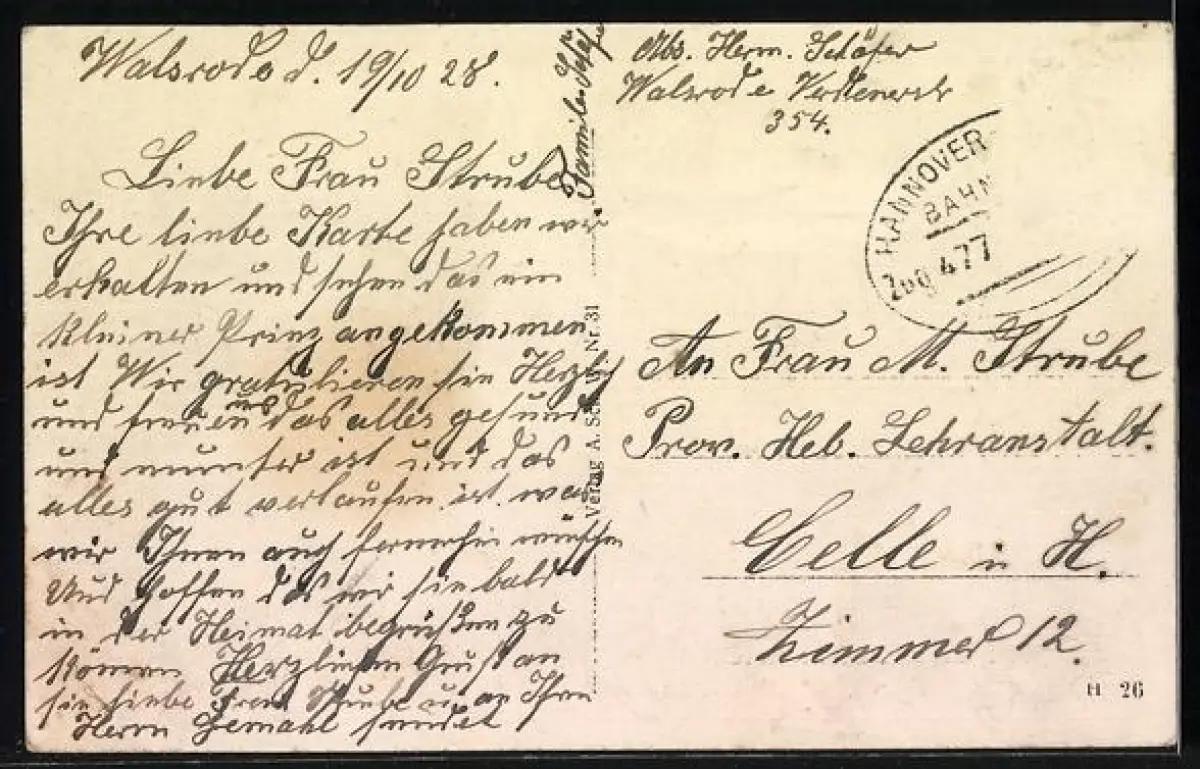 Walsrode d. 19/10 28.
Liebe Frau Strube
Ihre liebe Karte haben wir
erhalten und sehen das ein
kleiner Prinz angekommen
ist Wir gratulieren sie Herzlich
und freuen uns das alles gesund
und munter ist und das
alles gut verlaufen ist was
wir Ihnen auch fernerhin wünschen
Und hoffen das wir sie bald
in der Heimat begrüßen zu
können Herzlichen Gruß an
sie liebe Frau Strube u. an Ihren
Herrn Gemahl sendet
Familie Schäfer
Verlag A. Nr. 31
Abs. Herm. Schäfer
Walsrode Verdenerstr
354.
HANNOVER
BAHN
Zug 477
An Frau M. Strube
Prov. Heb. Lehranstalt.
Celle i H.
Zimmer 12.
H 26